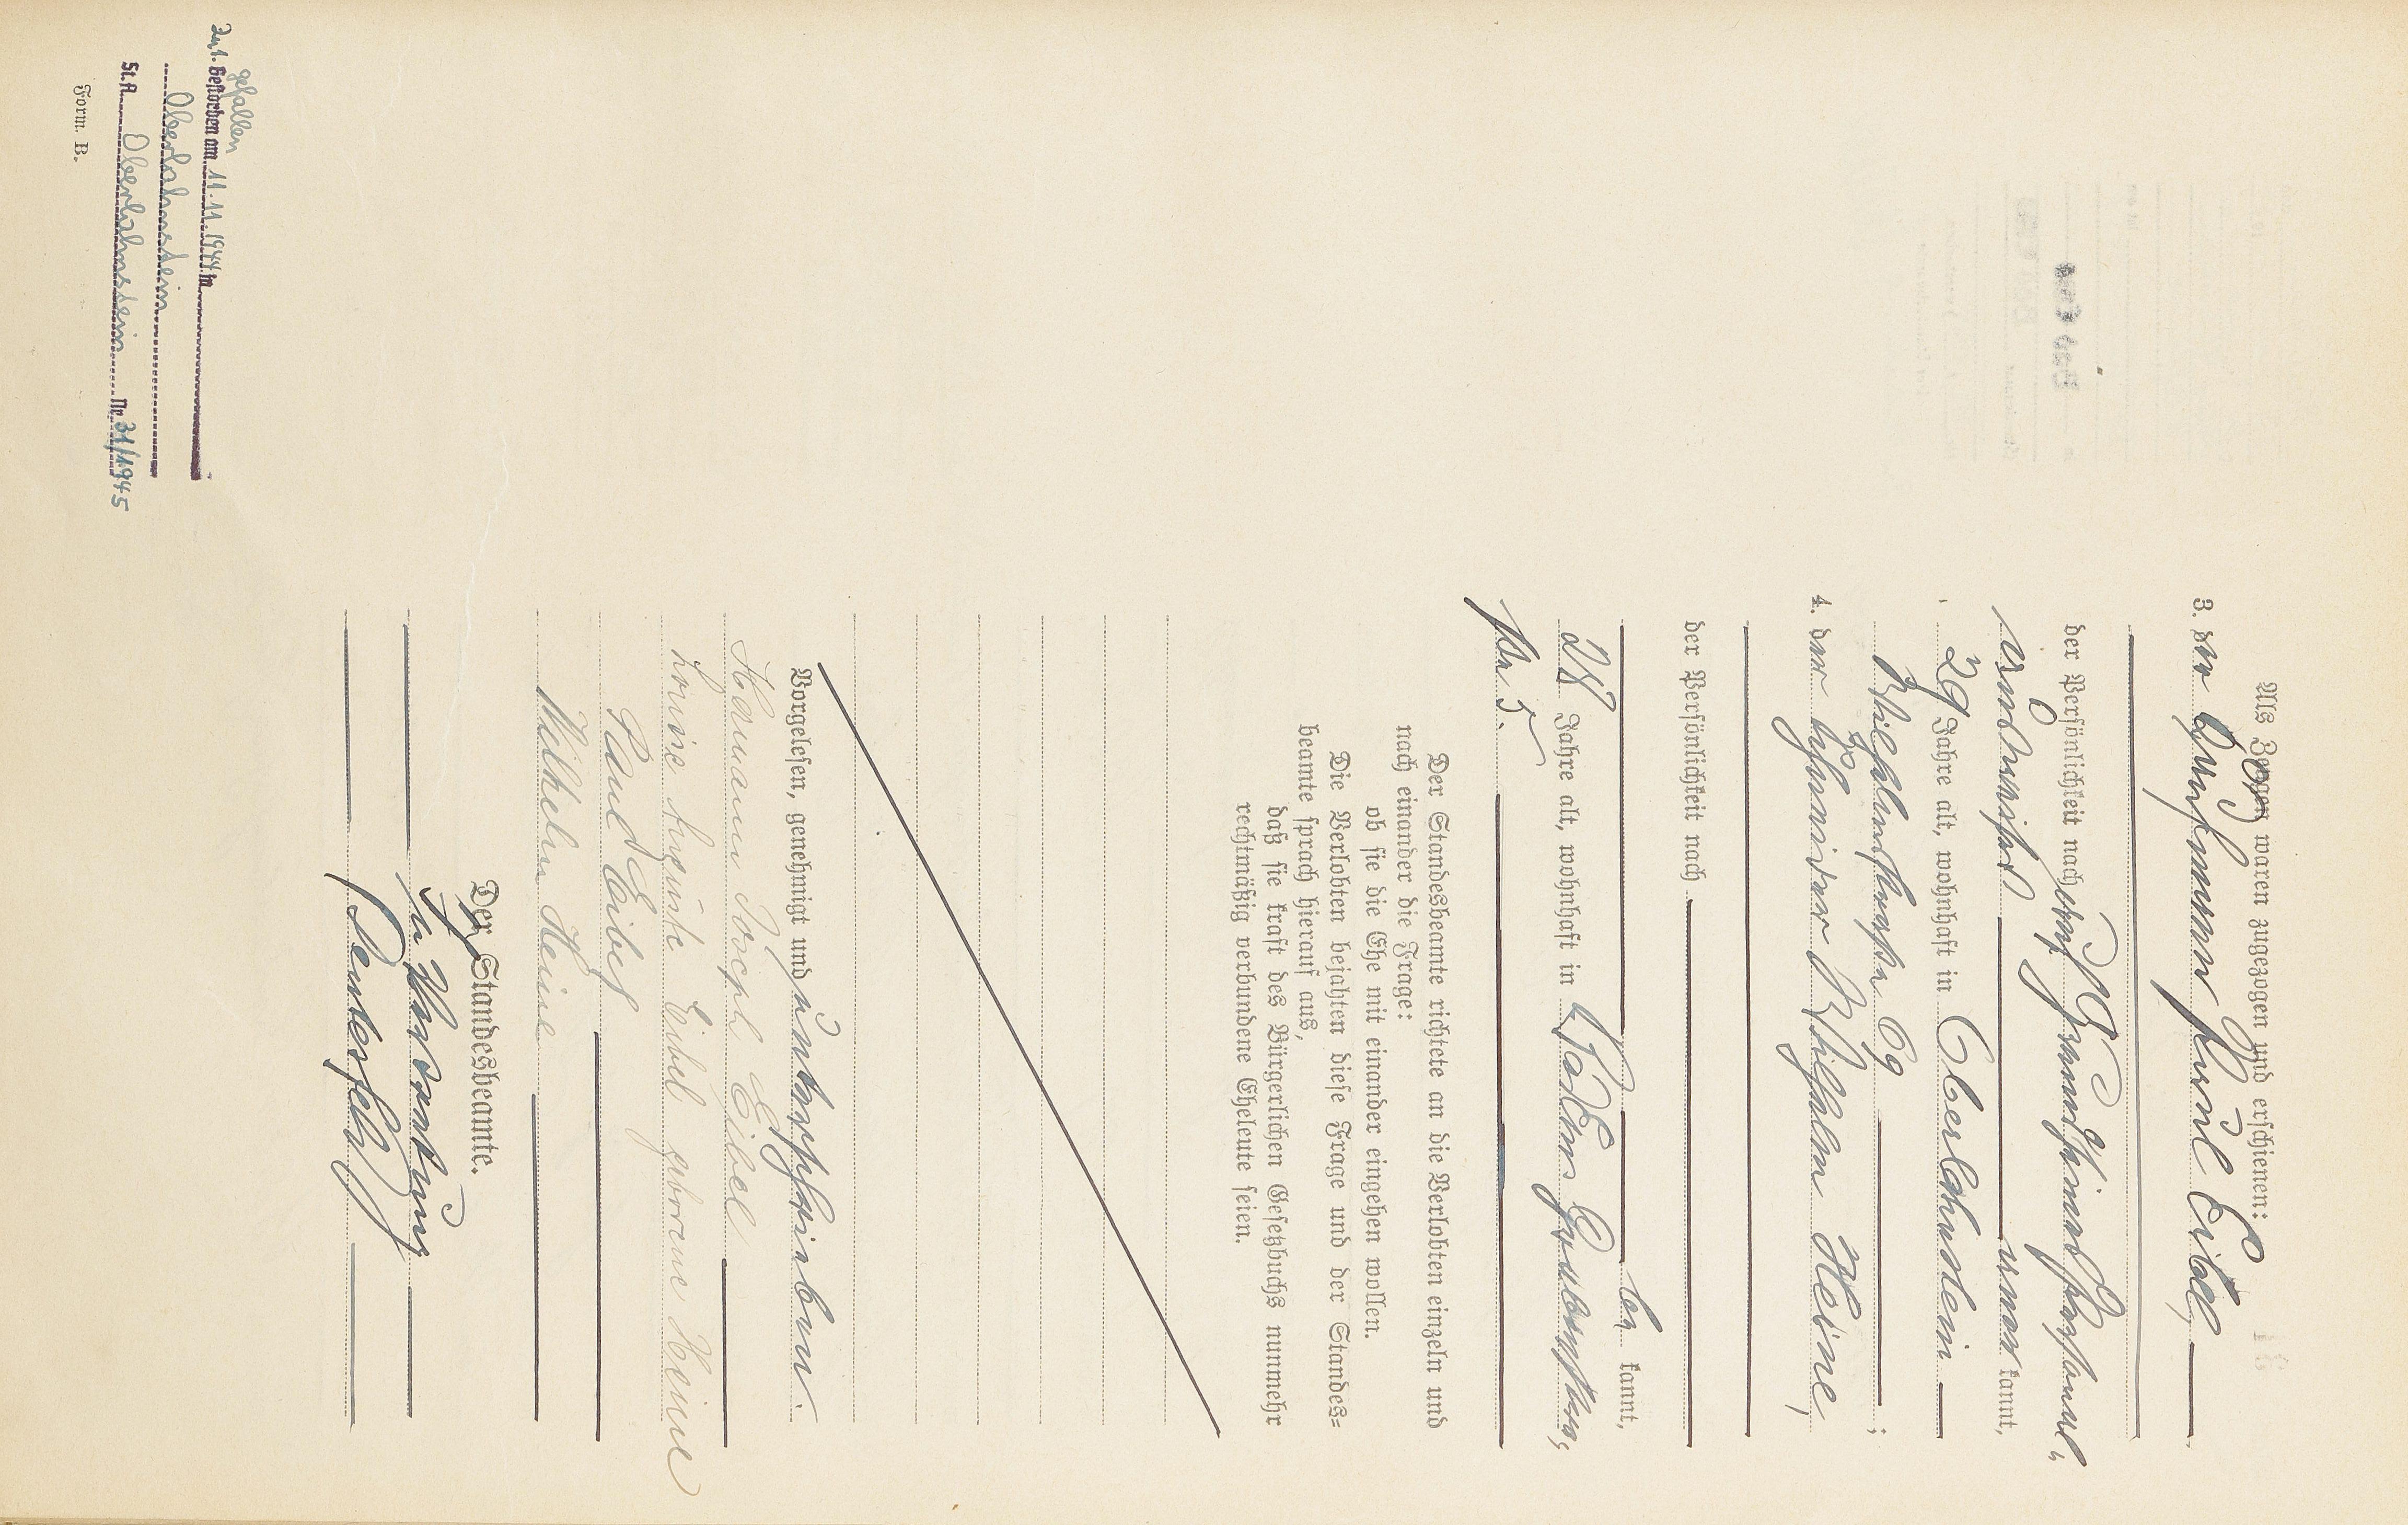 Als Zeugen waren zugezogen und erschienen:
3. der Hausmann Paul Eibel,
der Persönlichkeit nach durch Heiratsurkunde
ausgewiesen kannt,
29 Jahre alt, wohnhaft in Oberlahnstein
Wilhelmstraße 69 ;
4. der Wilhelm Heine,
der Persönlichkeit nach
be kannt,
28 Jahre alt, wohnhaft in
No 5.
Der Standesbeamte richtete an die Verlobten einzeln und
nach einander die Frage:
ob sie die Ehe mit einander eingehen wollen.
Die Verlobten bejahten diese Frage und der Standes-
beamte sprach hierauf aus,
daß sie kraft des Bürgerlichen Gesetzbuchs nunmehr
rechtmäßig verbundene Eheleute seien.
Vorgelesen, genehmigt und unterschrieben.
Hermann Joseph Eibel
Louise Auguste Eibel geborene Heine
Paul Eibel
Wilhelm Heine
Der Standesbeamte.
In Vertretung
gefallen
Gestorben am 11.11.1944 in
Oberlahnstein
St.A. Oberlahnstein Nr. 31/1945
Form. B.